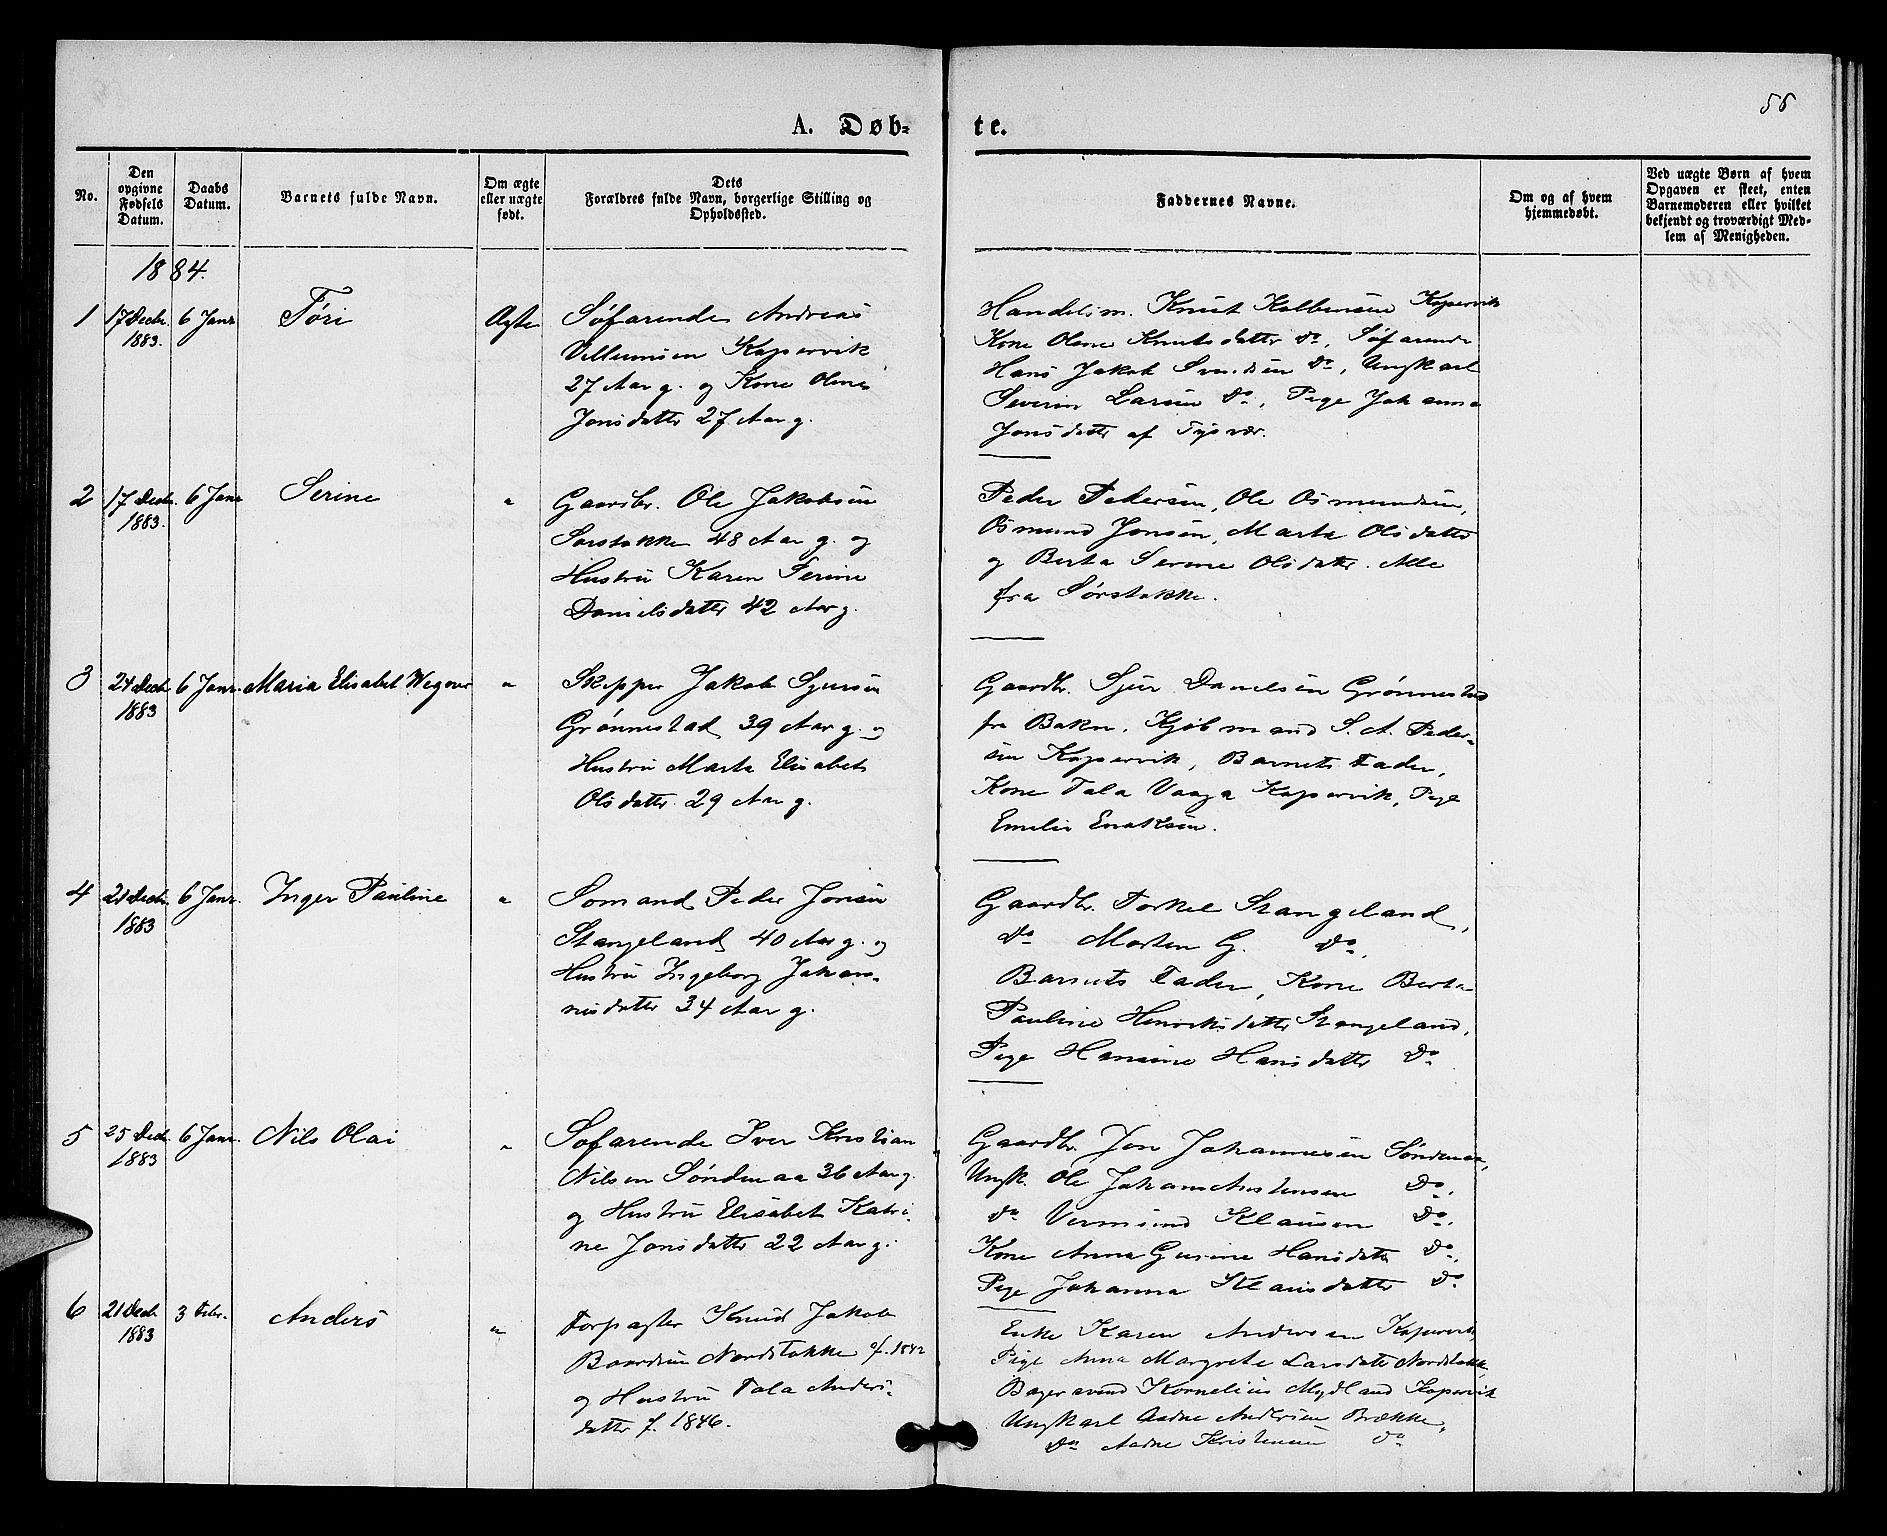 55
A. Døb-
te.
No.
Den
opgivne
Fødsels
Datum.
Daabs
Datum.
Barnets fulde Navn.
Om ægte
eller uægte
født.
Dets
Forældres fulde Navn, borgerlige Stilling og
Opholdssted.
Faddernes Navne.
Om og af hvem
hjemmedøbt.
Ved uægte Børn af hvem
Opgaven er skeet, enten
Barnemoderen eller hvilket
bekjendt og troværdigt Med-
lem af Menigheden.
1884.
1
17 Decbr.
1883.
6 Janr.
Tøri
Ægte
Søfarende Andreas
Villumsen Kopervik
27 Aar g. og Kone Oline
Jonsdatter 27 Aar g.
Handelsm. Knut Kolbensen Kopervik
Kone Olene Knutsdatter do, Søfarende
Hans Jakob Svendsen Do, Ungkarl
Severin Larsen Do, Pige Johanna
Jonsdatter af Tysvær.
2
17 Decbr.
1883.
6 Janr
Serine
"
Gaardbr. Ole Jakobsen
Sørstokke 48 Aar g. og
Hustru Karen Serine
Danielsdatter 42 Aar g.
Peder Pedersen, Ole Osmundsen,
Osmund Jonsen, Marta Olsdatter
og Berta Serine Olsdatter. Alle
fra Sørstokke.
3
24 Decbr.
1883
6 Janr.
Maria Elisabet Wegner
"
Skipper Jakob Sjursen
Grønnestad 39 Aar g. og
Hustru Marta Elisabet
Olsdatter 29 Aar g.
Gaardbr. Sjur Danielsen Grønnestad
fra Bokn, Kjøbmand S. A. Peder-
sen Kopervik, Barnets Fader,
Kone Tala Vaaga Kopervik, Pige
Emelie Enoksen.
4
21 Decbr.
1883
6 Janr.
Inger Pauline
"
Sømand Peder Jonsen
Stangeland 40 Aar g. og
Hustru Ingeborg Johan-
nesdatter 34 Aar g.
Gaardbr. Torkel Stangeland,
Do Morten G. Do,
Barnets Fader, Kone Berta
Pauline Henriksdatter Stangeland,
Pige Hansine Hansdatter Do
5
25 Decbr.
1883
6 Janr.
Nils Olai
"
Søfarende Iver Kristian
Nilsen Søndenaa 36 Aar g.
og Hustru Elisabet Katri-
ne Jonsdatter 22 Aar g.
Gaardbr. Jon Johannesen Søndenaa,
Ungk. Ole Johan Austensen Do,
do Vermund Klausen Do,
Kone Anna Gurine Hansdatter Do,
Pige Johanna Klausdatter Do
6
21 Decbr.
1883
3 Febr.
Anders
"
Forpagter Knud Jakob
Baardsen Nordstokke f. 1842
og Hustru Tala Anders-
datter f. 1846.
Enke Karen Andersen Kopervik
Pige Anna Margrete Larsdatter Nordstokke
Bagersvend Kornelius Mydland Kopervik
Ungkarl Aadne Andersen Brekke,
Do Aadne Kristensen Do